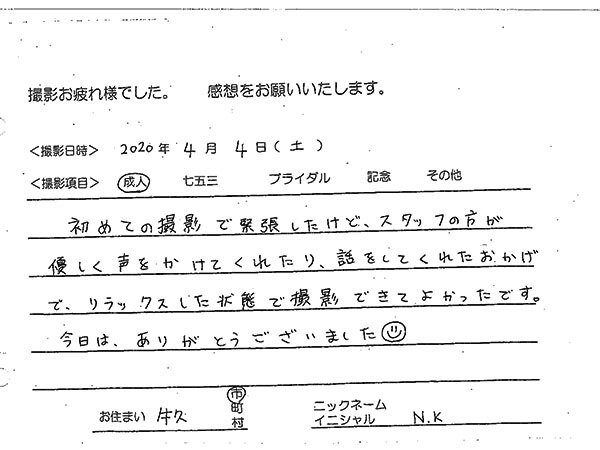 撮影お疲れ様でした。 感想をお願いいたします。
<撮影日時> 2020年 4月 4日(土)
<撮影項目> 成人 七五三 ブライダル 記念 その他
初めての撮影で緊張したけど、スタッフの方が
優しく声をかけてくれたり、話をしてくれたおかげ
で、リラックスした状態で撮影できてよかったです。
今日は、ありがとうございました☺
お住まい 牛久 市町村
ニックネーム
イニシャル N.K